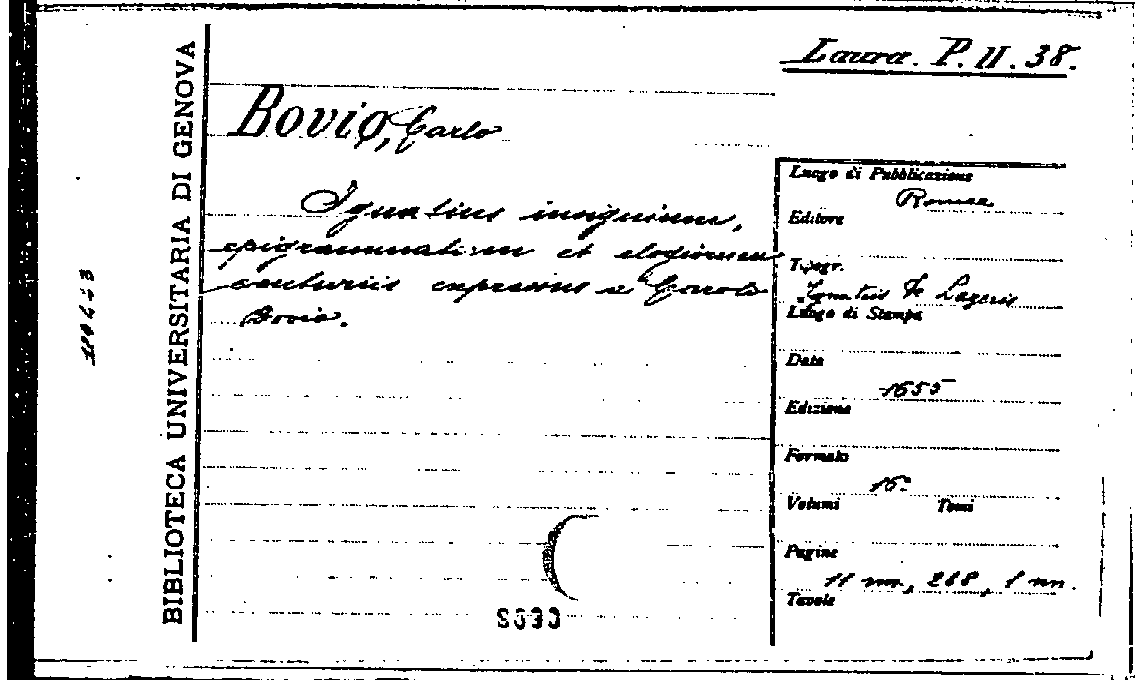 Laura. P. II. 38.
BIBLIOTECA UNIVERSITARIA DI GENOVA
Bovio, Carlo
Ignatius insignium,
epigrammatum et elogiorum
centuriis expressus a Carolo
Bovio.
Luogo di Pubblicazione
Romae
Editore
Tipogr.
Ignatiis de Lazeris
Luogo di Stampa
Data
1655
Edizione
Formato
16°
Volumi Tomi
Pagine
11 nn., 268, 1 nn.
Tavole